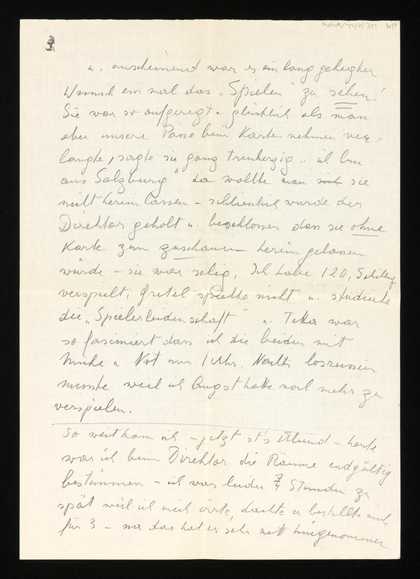 3
u. anscheinend war es ein lang gehegter
Wunsch einmal das "Spielen" zu sehen!
Sie war so aufgeregt u. glücklich als man
aber unsere Pässe beim Karte nehmen ver-
langte, sagte sie ganz treuherzig "ich bin
aus Salzburg" da wollte man sie
nicht herein lassen – schliesslich wurde der
Direktor geholt u. beschlossen dass sie ohne
Karte zum zuschauen herein gelassen
würde – sie war selig, Ich habe 120, Schilling
verspielt, Gretel spielte nicht u. studierte
die "Spielerleidenschaft" u. war
so fasciniert dass ich die beiden mit
Mühe u. Not um 1 Uhr Nachts losreissen
musste weil ich Angst hatte noch mehr zu
verspielen.
So weit kam ich – jetzt ist's Abend – heute
war ich beim Direktor die Räume endgültig
bestimmen – ich war leider ¾ Stunden zu
spät weil ich mich irrte, dachte er bestellte mich
für 3 – nur das hat er sehr